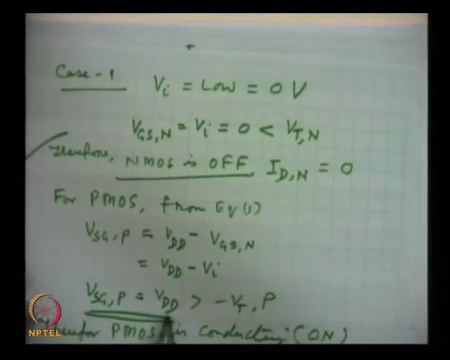 Case-1 Vi = Low = 0 V
VGS,N = Vi = 0 < VT,N
Therefore, NMOS is OFF, ID,N = 0
For PMOS, from Eq (1)
VSG,P = VDD - VGS,N
= VDD - Vi
VSG,P = VDD > -VT,P
PMOS is conducting (ON)
NPTEL